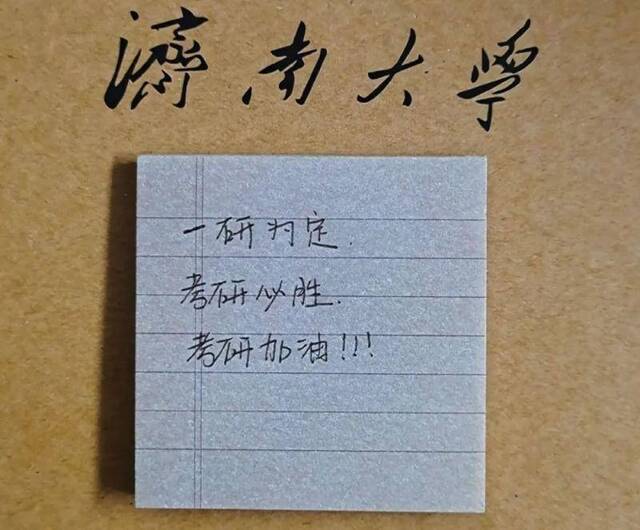 濟南大學
一研为定.
考研必胜.
考研加油!!!